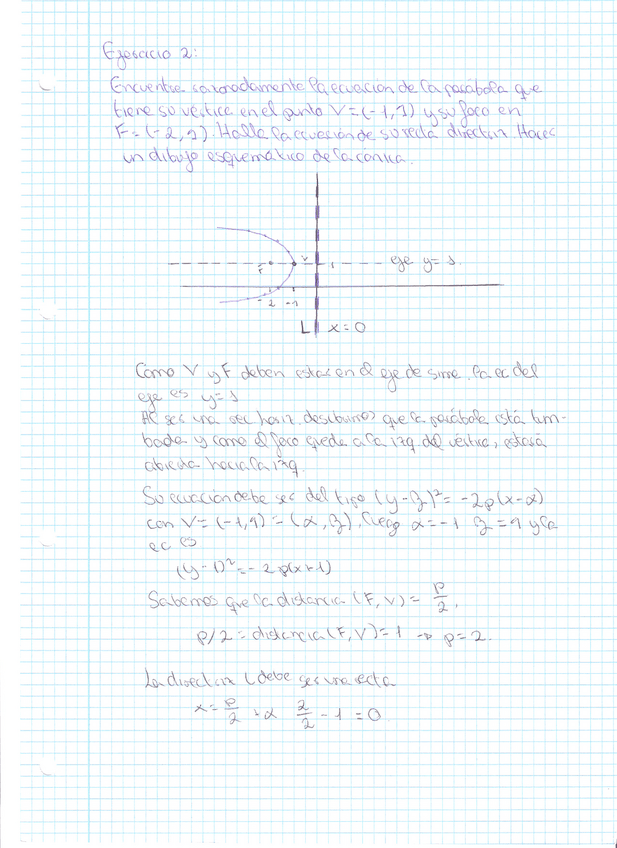 Ejercicio 2:
Encuentre razonadamente la ecuación de la parábola que
tiene su vértice en el punto V=(-1,1) y su foco en
F=(-2,1). Halla la ecuación de su recta directriz. Haces
un dibujo esquemático de la cónica.
F V 1 eje y=1
-2 -1
L x=0
Como V y F deben estar en el eje de sime. la ec del
eje es y=1
Al ser una rec horiz. descubrimos que la parábola está tum-
bada y como el foco queda a la izq del vértice, estará
abierta hacia la izq.
Su ecuación debe ser del tipo (y-β)²=-2p(x-α)
con V=(-1,1)=(α,β), luego α=-1 β=1 y la
ec es
(y-1)²=-2p(x+1)
Sabemos que la distancia (F,V)=p/2,
p/2=distancia(F,V)=1 → p=2.
La directriz L debe ser una recta
x=p/2+α 2/2-1=0